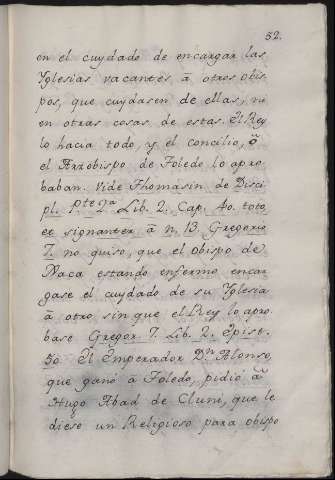 52.
en el cuydado de encargar las
Yglesias vacantes â otros obis
pos, que cuydasen de ellas, ni
en otras cosas de estas. El Rey
lo hacia todo, y el concilio, ô
el Arzobispo de Toledo lo apro
baban. Vide Thomasin. de Disci
pl. pte 2a Lib. 2. Cap. 40. toto,
et signanter â n. 13. Gregorio
7. no quiso, que el obispo de
Naca estando enfermo encar
gase el cuydado de su Yglesia
â otro sin que el Rey lo apro
base Gregor. 7. Lib. 2. Epist.
50. El Emperador Dn Alonso,
que ganô a Toledo, pidiô â
Hugo Abad de Cluni, que le
diese un Religioso para obispo